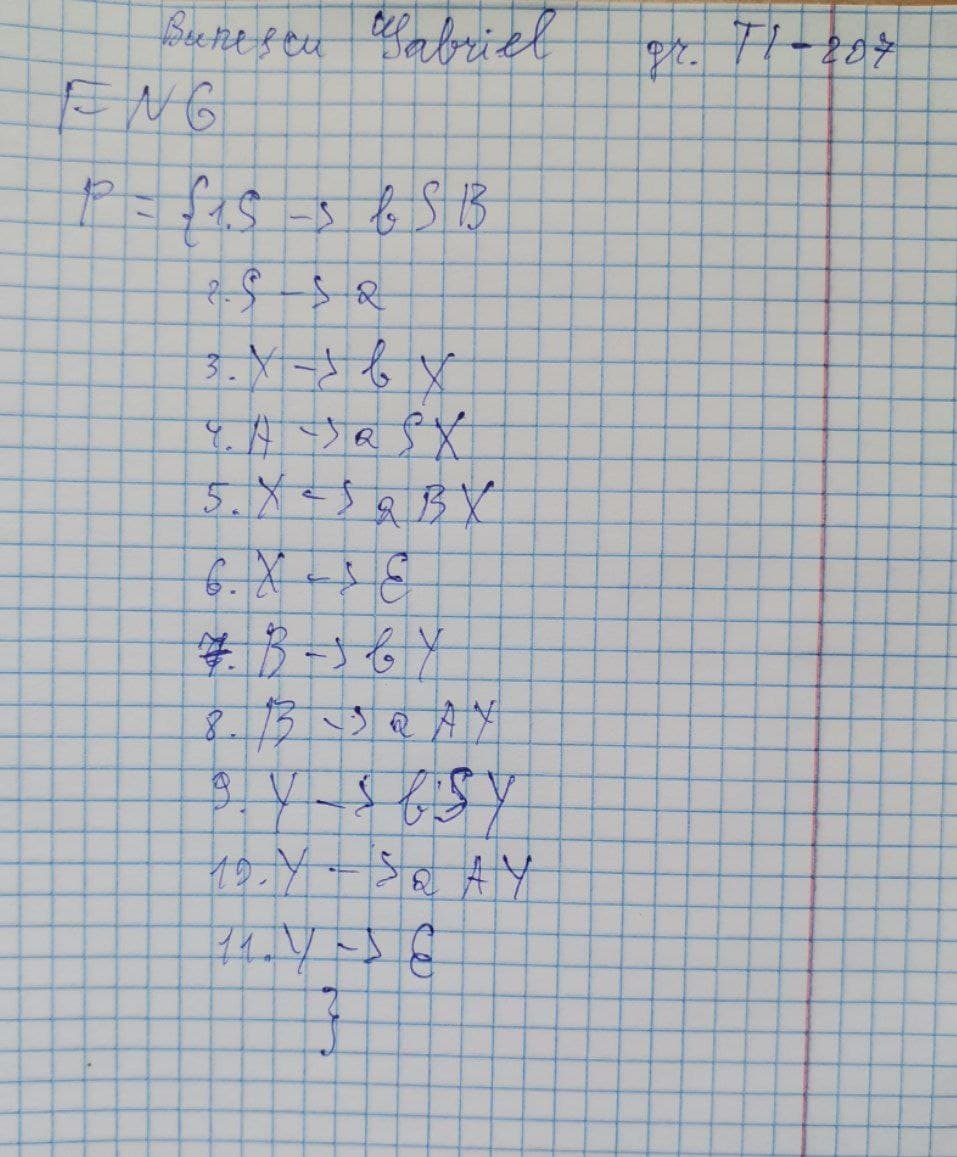 Bunescu Gabriel gr. TI-207
FNG
P = {1.S -> bSB
2.S -> a
3.X -> bX
4.A -> aSX
5.X -> aBX
6.X -> ε
7.B -> bY
8.B -> aAY
9.Y -> bSY
10.Y -> aAY
11.Y -> ε
}